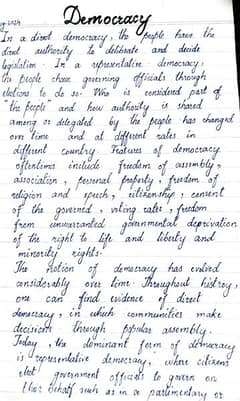 9-2024
Democracy
In a direct democracy, the people have the
direct authority to deliberate and decide
legislation. In a representative democracy,
the people choose governing officials through
elections to do so. Who is considered part of
"the people" and how authority is shared
among or delegated by the people has changed
over time and at different rates in
different country. Features of democracy
oftentimes include freedom of assembly,
association, personal property, freedom of
religion and speech, citizenship, consent
of the governed, voting rates, freedom
from unwarranted governmental deprivation
of the right to life and liberty and
minority rights.
The notion of democracy has evolved
considerably over time. Throughout history,
one can find evidence of direct
democracy, in which communities make
decisions through popular assembly.
Today, the dominant form of democracy
is representative democracy, where citizens
elect government officials to govern on
their behalf such as in a parliamentary or